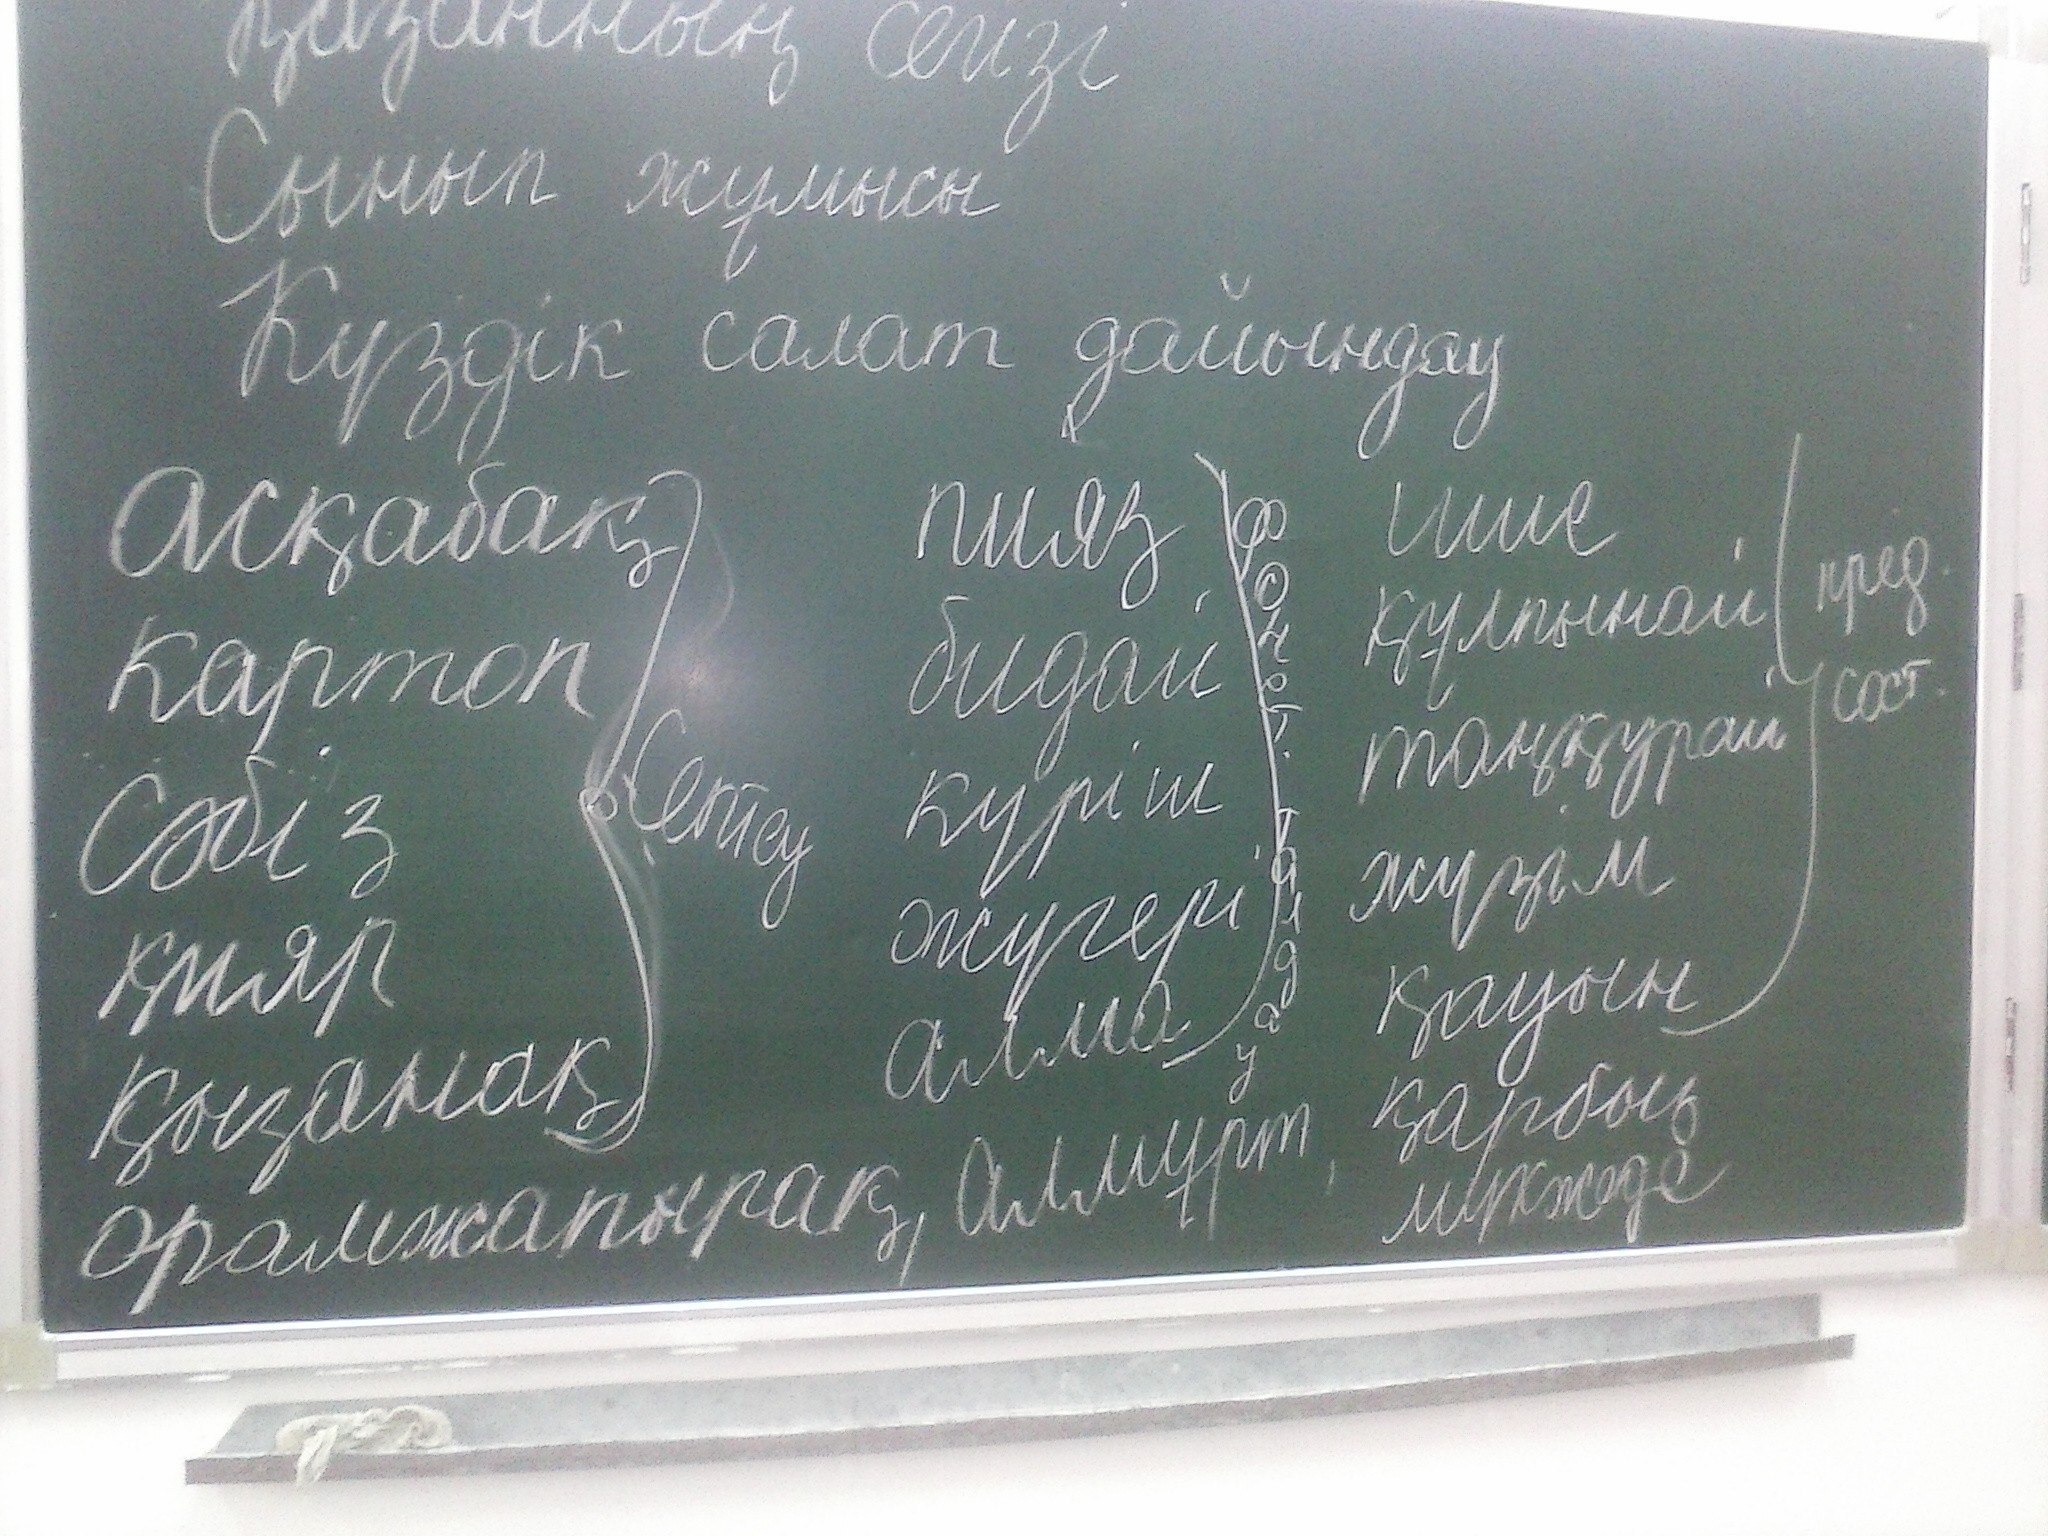 қазанның сегізі
Сынып жұмысы
Күздік салат дайындау
асқабақ
картоп
сәбіз
қияр
қызанақ
орамжапырақ, алмұрт,
Септеу
пияз
бидай
күріш
жүгері
алма
фонет. талдау
шие
құлпынай
таңқурай
жүзім
қауын
қарбыз
мүкжеде
пред.
сост.